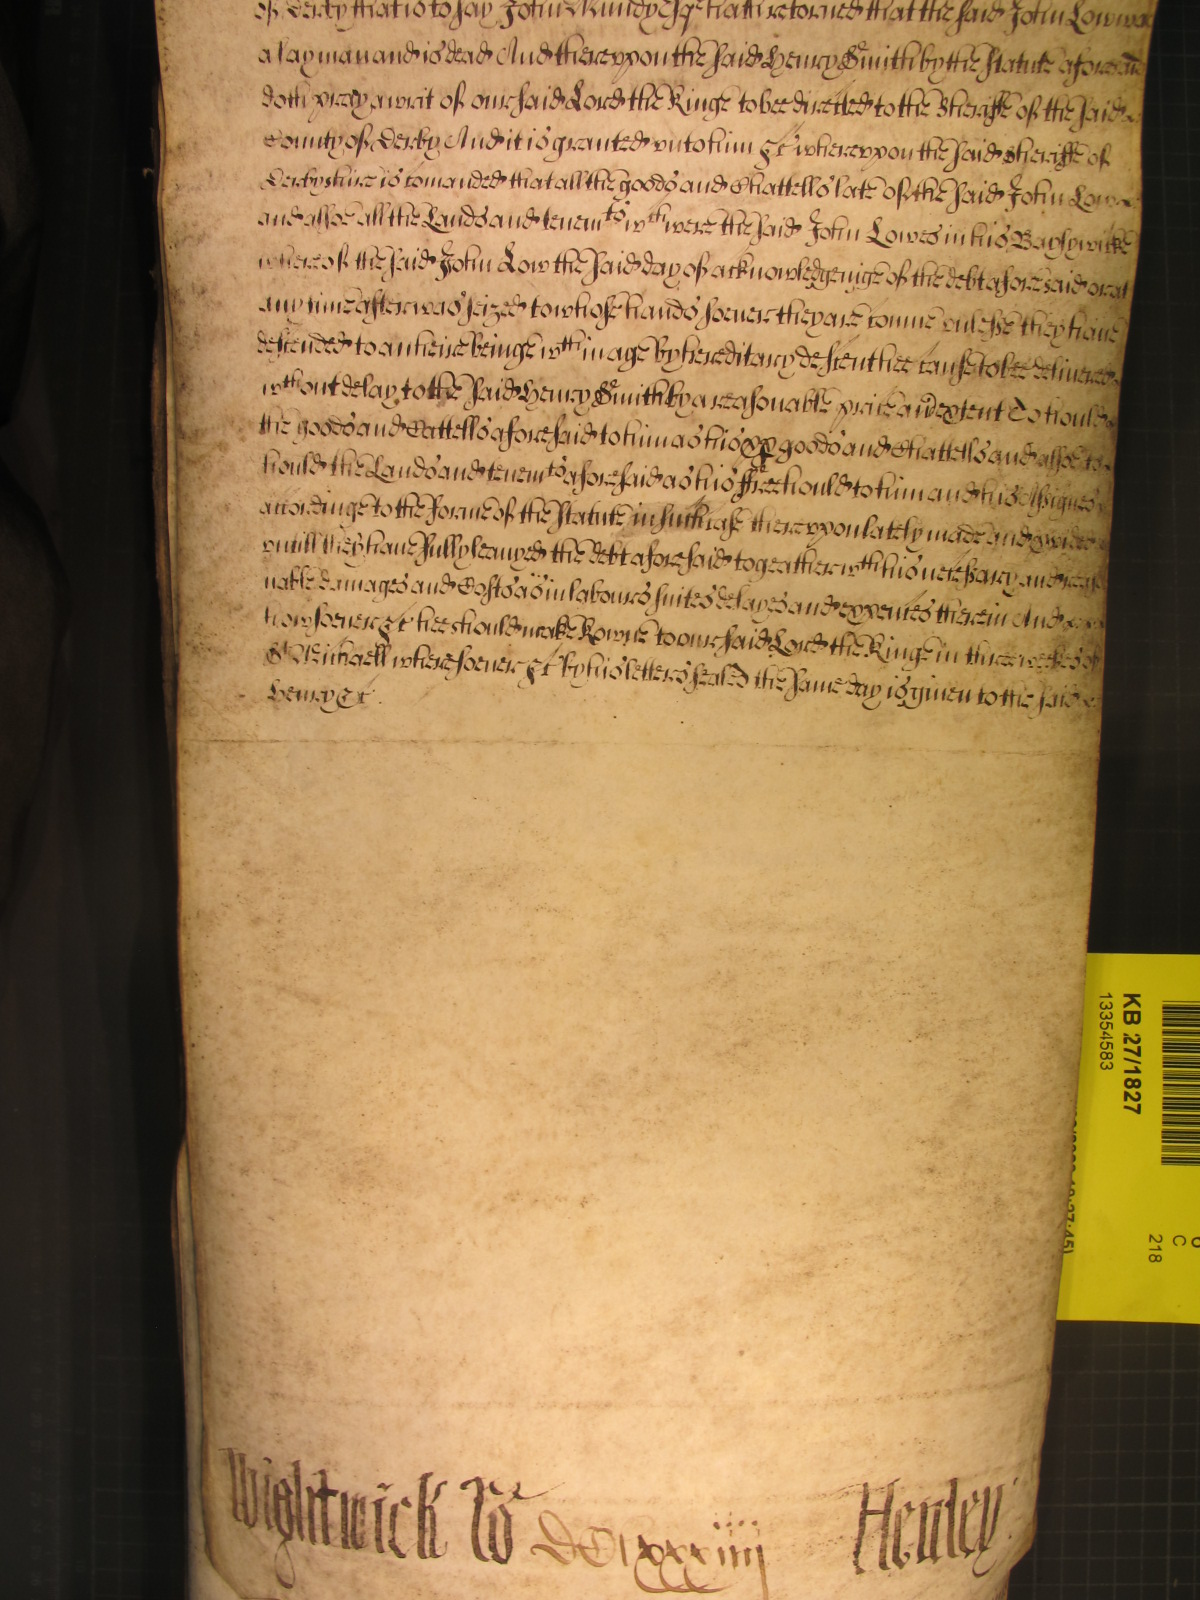 of Derby that is to say John Mundy Esqr hath retorned that the said John Low was
a layman and is dead And therevpon the said Henry Smith by the Statute aforesaid
doth pray a writ of our said Lord the Kinge to bee directed to the Sheriffe of the said
County of Derby And it is granted vnto him &c wherevpon the said Sheriffe of
Derbyshire is comanded that all the goods and Chattells late of the said John Low
and alsoe all the Lands and tenemts wch were the said John Lowes in his Baylywicke
whereof the said John Low the said day of acknowledgeinge of the debt aforesaid or at
any time after was seized to whose hands soever they are come vnlesse they have
descended to an heire beinge wthin age by hereditary descent hee cause to bee delivered
wthout delay to the said Henry Smith by a reasonable price and extent To hould
the goods and Cattells aforesaid to him as his pper goods and Chattells and alsoe to
hould the Lands and tenemts aforesaid as his ffreehould to him and his Assignes
accordinge to the forme of the Statute in such case therevpon lately made and provided
vntill they have fully leavyed the debt aforesaid togeather wth his necessary and reaso
nable damages and Costs as in labours suites delayes and expences therein And
howsoever &c hee should make knowne to our said Lord the Kinge in three weekes of
St Michaell wheresoever &c by his letters sealed the same day is given to the said
Henry &c.
Wightwick Ro DCLxxxiiij Henley
KB 27/1827
13354583
C
218